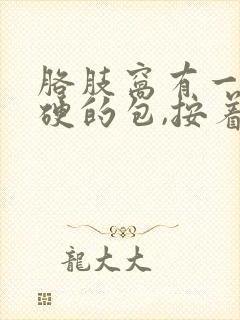 胳肢窝有一
硬的包,按着
龍大大